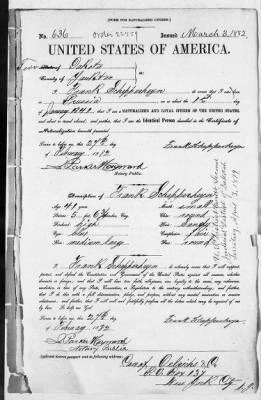 [FORM FOR NATURALIZED CITIZEN.]
No. 636 Issued March 3. 1882
UNITED STATES OF AMERICA.
State of Dakota
County of Yankton
I, Frank Schippenheyn do swear that I was born
in Prussia on or about the 1st day
of January 1841; that I am a NATURALIZED AND LOYAL CITIZEN OF THE UNITED STATES,
and about to travel abroad; and that I am the Identical Person described in the Certificate of
Naturalization herewith presented.
Sworn to before me this 27th
day of February 1882
L. Parker Hayward
Notary Public.
Description of Frank Schippenheyn
Age: 41 years
Stature: 5 feet inches, Eng.
Forehead: high
Eyes: blue
Nose: medium large
Mouth: small
Chin: round
Hair:
Complexion: fair
Face: round
I, Frank Schippenheyn do solemnly swear that I will support,
protect, and defend the Constitution and Government of the United States against all enemies, whether
domestic or foreign; and that I will bear true faith, allegiance, and loyalty to the same, any ordinance,
resolution, or law of any State, Convention, or Legislature to the contrary notwithstanding; and further,
that I do this with a full determination, pledge, and purpose, without any mental reservation or evasion
whatsoever; and further, that I will well and faithfully perform all the duties which may be required of me
by law: So help me God.
Sworn to before me this 27th
day of February 1882
L. Parker Hayward
Notary Public
Applicant desires passport to be sent to
Care of Oelrichs & Co
P.O. Box 137
New York City